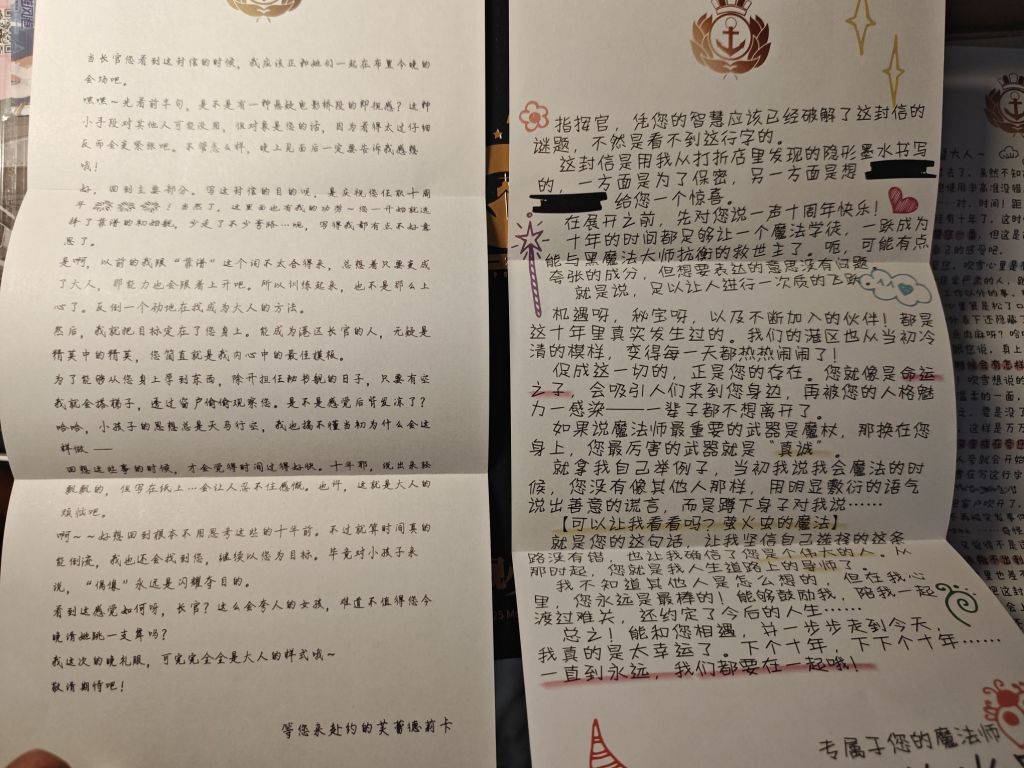 当长官您看到这封信的时候，我应该正和她们一起在布置今晚的
会场吧。
嘿嘿～先看前半句，是不是有一种悬疑电影桥段的即视感？这种
小手段对其他人可能没用，但对象是您的话，因为看得太过仔细
反而会更紧张吧。不管怎么样，晚上见面后一定要告诉我感想
哦！
好，回到主要部分。写这封信的目的呢，是庆祝您任职十周
年 当然了，这里面也有我的功劳～您一开始就选
择了靠谱的初始舰，少走了不少弯路…呃，写得我都有点不好意
思了。
是啊，以前的我跟“靠谱”这个词不太合得来，总想着只要变成
了大人，那能力也会跟着上升吧。所以训练起来，也不是那么上
心了。反倒一个劲地在找成为大人的方法。
然后，我就把目标定在了您身上。能成为港区长官的人，无疑是
精英中的精英，您简直就是我内心中的最佳模板。
为了能够从您身上学到东西，除开担任秘书舰的日子，只要有空
我就会搭梯子，透过窗户偷偷观察您。是不是感觉后背发凉了？
哈哈，小孩子的思想总是天马行空，我也搞不懂当初为什么会这
样做——
回想这些事的时候，才会觉得时间过得好快。十年耶，说出来轻
飘飘的，但写在纸上…会让人忍不住感慨。也许，这就是大人的
烦恼吧。
啊～～好想回到根本不用思考这些的十年前。不过就算时间真的
能倒流，我也还会找到您，继续以您为目标。毕竟对小孩子来
说，“偶像”永远是闪耀夺目的。
看到这感觉如何呀，长官？这么会夸人的女孩，难道不值得您今
晚请她跳一支舞吗？
我这次的晚礼服，可完完全全是大人的样式哦～
敬请期待吧！
等您来赴约的芙蕾德莉卡
指挥官，凭您的智慧应该已经破解了这封信的
谜题，不然是看不到这行字的。
这封信是用我从打折店里发现的隐形墨水书写
的，一方面是为了保密，另一方面是想
给您一个惊喜。
在展开之前，先对您说一声十周年快乐！
十年的时间都足够让一个魔法学徒，一跃成为
能与黑魔法大师抗衡的救世主了。呃，可能有点
夸张的成分，但想要表达的意思没有问题
就是说，足以让人进行一次质的飞跃
机遇呀，秘宝呀，以及不断加入的伙伴！都是
这十年里真实发生过的。我们的港区也从当初冷
清的模样，变得每一天都热热闹闹了！
促成这一切的，正是您的存在。您就像是命运
之子，会吸引人们来到您身边，再被您的人格魅
力一感染——一辈子都不想离开了。
如果说魔法师最重要的武器是魔杖，那换在您
身上，您最厉害的武器就是“真诚”。
就拿我自己举例子，当初我说我会魔法的时
候，您没有像其他人那样，用明显敷衍的语气
说出善意的谎言，而是蹲下身子对我说……
【可以让我看看吗？萤火虫的魔法】
就是您的这句话，让我坚信自己选择的这条
路没有错，也让我确信了您是个伟大的人。从
那时起，您就是我人生道路上的导师了。
我不知道其他人是怎么想的，但在我心
里，您永远是最棒的！能够鼓励我，陪我一起
渡过难关，还约定了今后的人生……
总之！能和您相遇，并一步步走到今天，
我真的是太幸运了。下个十年，下下个十年……
一直到永远，我们都要在一起哦！
专属于您的魔法师